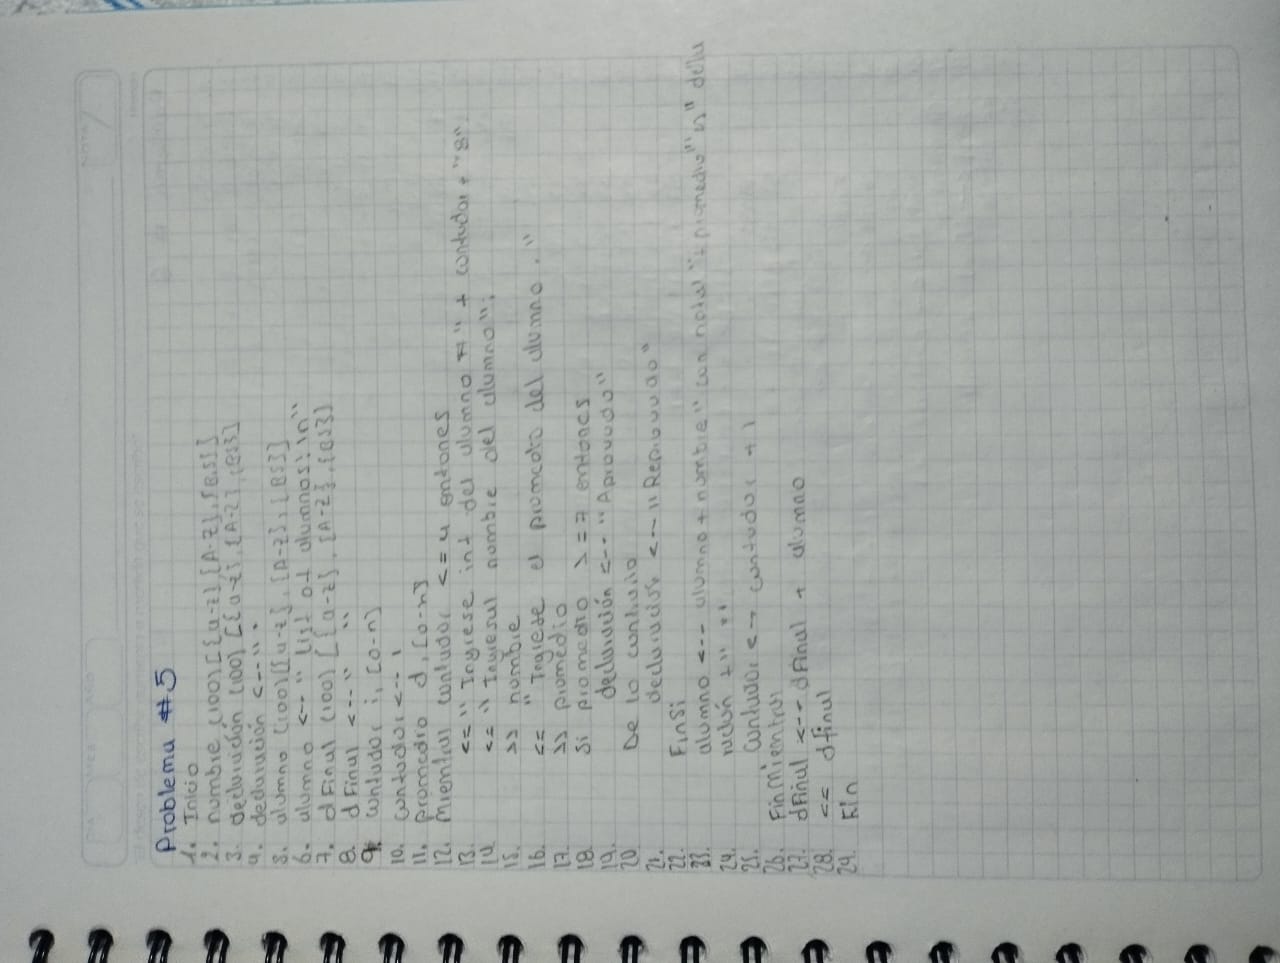 Problema #5
1. Inicio
2. nombre (100) [{a-z} {A-Z}, {BS}]
3. declaración (100) [{a-z}, {A-Z}, {BS}]
4. declaración <-- " "
5. alumno (100) [{a-z}, {A-Z}, {BS}]
6. alumno <-- "List of alumnos: \n"
7. dFinal (100) [{a-z}, {A-Z}, {BS}]
8. dFinal <-- " "
9. contador i, [0-n]
10. contador <-- 1
11. promedio d, [0-n]
12. Mientras contador <= 4 entones
13. <= "Ingrese inf del alumno #" + contador +
14. <= nombre del alumno":
15. >> nombre
16. <= "Ingrese el del alumno."
17. >> promedio
18. Si promedio >= 7 entonces
19. declaración <-- "Aprovado"
20. De lo contrario
21. declaración <-- "Reprovado"
22. FinSi
23. alumno <-- alumno + nombre "con nota" + promedio "\n" decla
24. ración +
25. contador <-- contador + 1
26. FinMientras
27. dFinal <-- dFinal + alumno
28. << dFinal
29. Fin